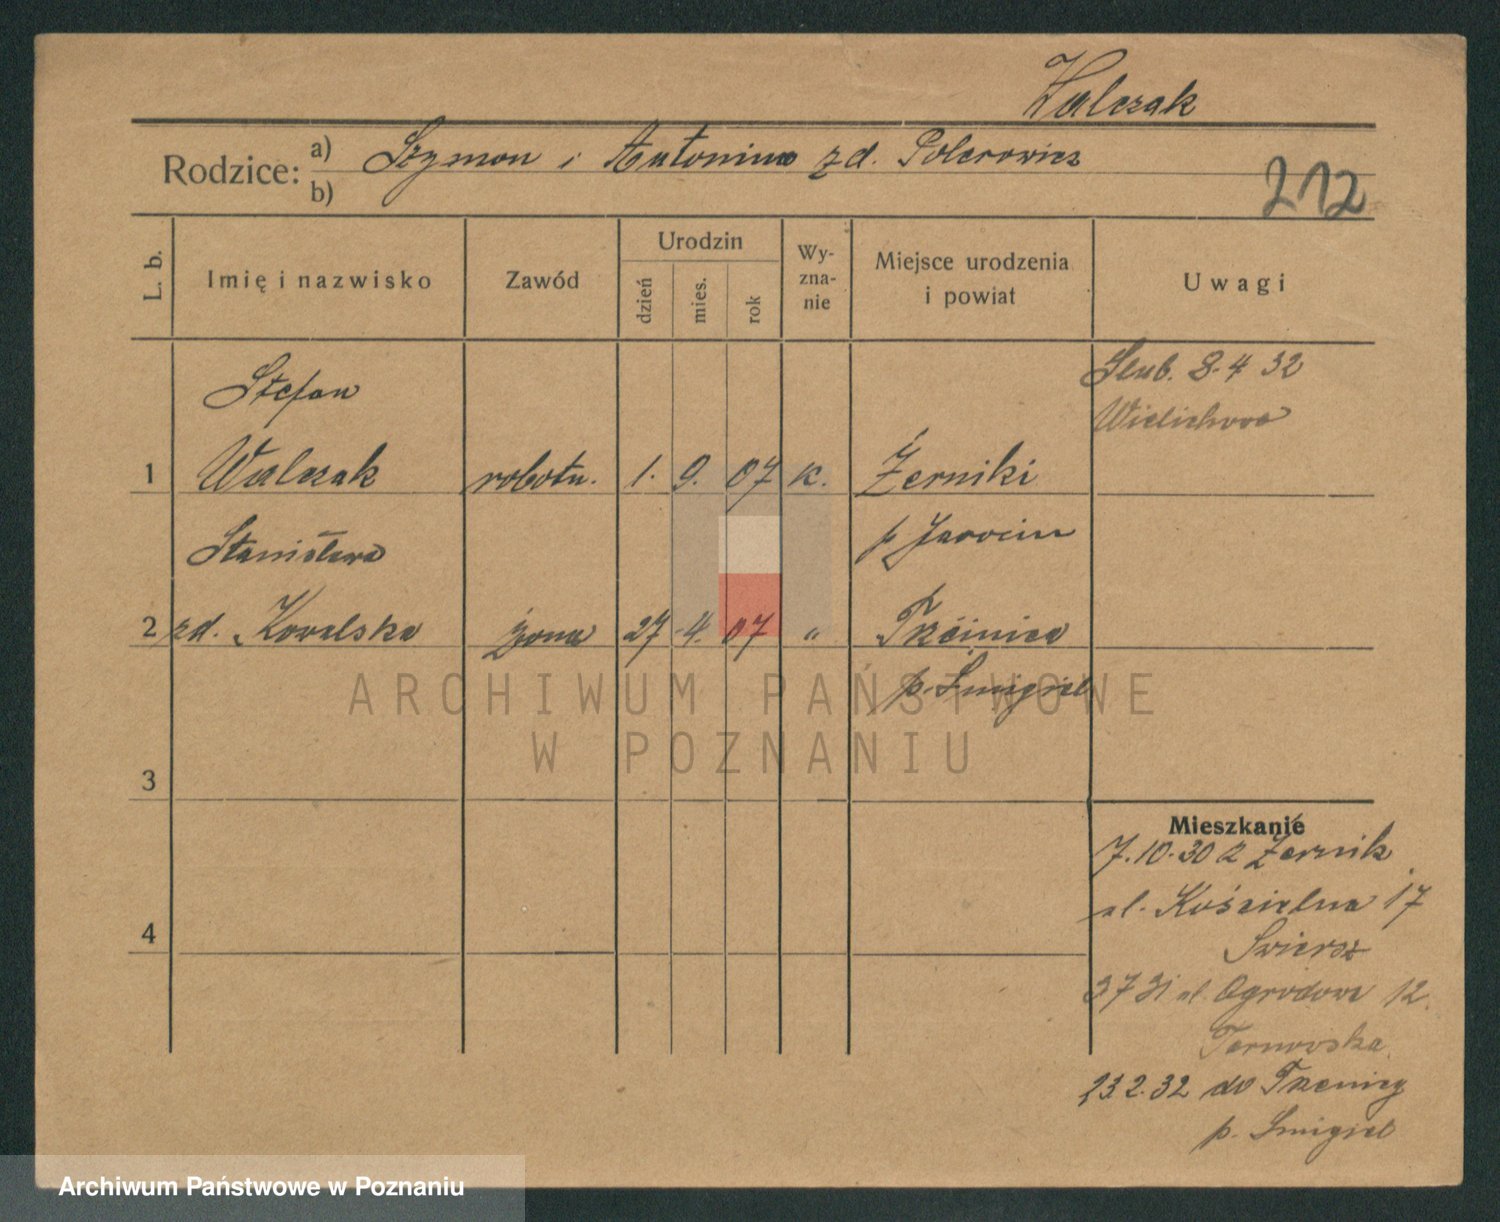 Walczak
Rodzice: a) Szymon i Antonina zd. Polcrowicz
b)
212
L. b.
Imię i nazwisko
Zawód
Urodzin
dzień
mies.
rok
Wy-
zna-
nie
Miejsce urodzenia
i powiat
Uwagi
Stefan
Ślub. 8.4 32
Wielichowo
1 Walczak robotn. 1. 9. 07 k. Żerniki
Stanisława p Jarocin
2 zd. Kowalska żona 27 4. 07 " Trzcinica
p. Śmigiel
3
4
Mieszkanie
7.10.30 z Żernik
ul. Kościelna 17
Swiersz
3 7 31 ul. Ogrodowa 12.
Tarnowska
23.2.32 do Trzcnicy
p. Smigiel
ARCHIWUM PAŃSTWOWE
W POZNANIU
Archiwum Państwowe w Poznaniu